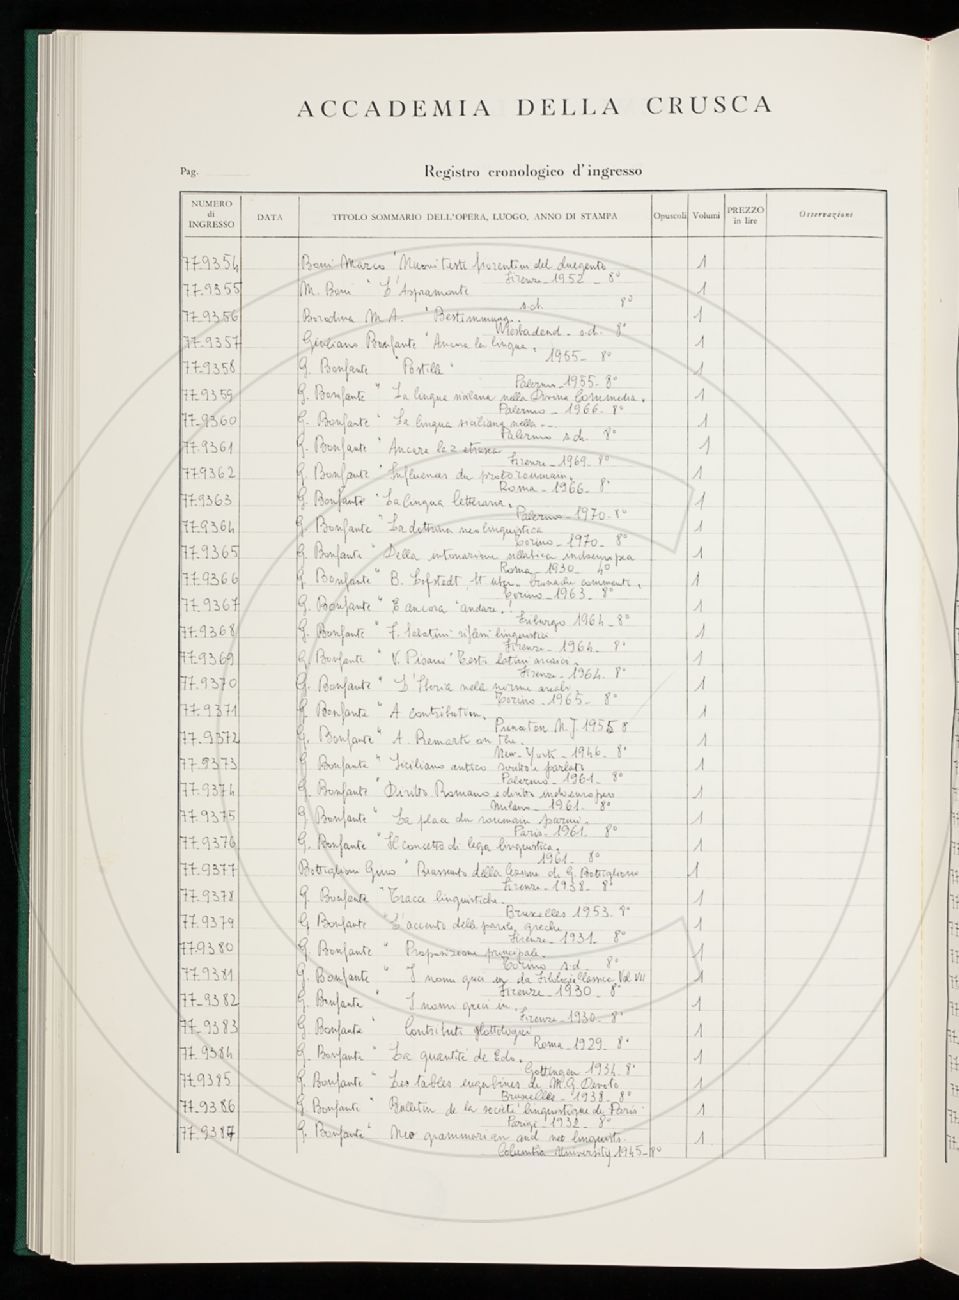 ACCADEMIA DELLA CRUSCA
Pag.
Registro cronologico d'ingresso
NUMERO di INGRESSO DATA TITOLO SOMMARIO DELL'OPERA, LUOGO, ANNO DI STAMPA Opuscoli Volumi PREZZO in lire Osservazioni
77.9354 Boni Marco " Nuovi testi fiorentini del duegento 1
Firenze - 1952 - 8°
77.9355 M. Boni " L'Aspramonte 1
s.d. 8°
77.9356 Borodina M.A. " Bestimmung. 1
s.d. 8°
77.9357 Giuliano Bonfante " Ancora la lingua. 1
1955 - 8°
77.9358 G. Bonfante " Postilla " 1
Palermo - 1955 - 8°
77.9359 G. Bonfante " La lingua siciliana nella Divina Commedia. 1
Palermo - 1966 - 8°
77.9360 G. Bonfante " La lingua siciliana nella -.- 1
Palermo s.d. 8°
77.9361 G. Bonfante " Ancora la z etrusca 1
Firenze - 1969 - 8°
77.9362 G. Bonfante " Influences du protoroumain. 1
Roma - 1966 - 8°
77.9363 G. Bonfante " La lingua letteraria. 1
Palermo - 1970 - 8°
77.9364 G. Bonfante " La dottrina neolinguistica 1
Torino - 1970 - 8°
77.9365 G. Bonfante " Della intonazione sillabica indoeuropea 1
Roma - 1930 - 4°
77.9366 G. Bonfante " B. Löfstedt, commenti. 1
Torino - 1963 - 8°
77.9367 G. Bonfante " E ancora "andare"! 1
Friburgo 1964 - 8°
77.9368 G. Bonfante " F. Sabatini riflessi linguistici 1
Firenze - 1964 - 8°
77.9369 G. Bonfante " V. Pisani "Testi latini arcaici. 1
Firenze - 1964. 8°
77.9370 G. Bonfante " L'Storia nelle norme areali 1
Torino - 1965 - 8°
77.9371 G. Bonfante " A contribution. 1
Princeton N.J. 1955 8
77.9372 G. Bonfante " A Remark on the. 1
New-York - 1946 - 8°
77.9373 G. Bonfante " Siciliano antico scritto e parlato 1
Palermo - 1961 - 8°
77.9374 G. Bonfante " Diritto Romano e diritto indoeuropeo 1
Milano - 1961 - 8°
77.9375 G. Bonfante " La place du roumain parmi. 1
Paris - 1961. 8°
77.9376 G. Bonfante " Il concetto di lega linguistica. 1
1961 - 8°
77.9377 Bottiglioni Gino " Riassunto della lezione di G. Bottiglioni 1
Firenze - 1938 - 8°
77.9378 G. Bonfante " Tracce linguistiche. 1
Bruxelles 1953. 8°
77.9379 G. Bonfante " L'accento delle parole greche 1
Firenze - 1931 - 8°
77.9380 G. Bonfante " Proposizione principale. 1
Torino s.d. - 8°
77.9381 G. Bonfante " I nomi greci in da Filologia Classica Vol VII 1
Firenze - 1930 - 8°
77.9382 G. Bonfante " I nomi greci in. 1
Firenze - 1930 - 8°
77.9383 G. Bonfante " Contributi glottologici 1
Roma - 1929 - 8°
77.9384 G. Bonfante " La quantité de Edo. 1
Gottingen 1934. 8°
77.9385 G. Bonfante " Les tables eugubines de M.G. Devoto 1
Bruxelles - 1938 - 8°
77.9386 G. Bonfante " Bulletin de la société linguistique de Paris. 1
Parigi 1938 - 8°
77.9387 G. Bonfante " Neo grammarian and neo linguists. 1
Columbia University 1945 - 8°